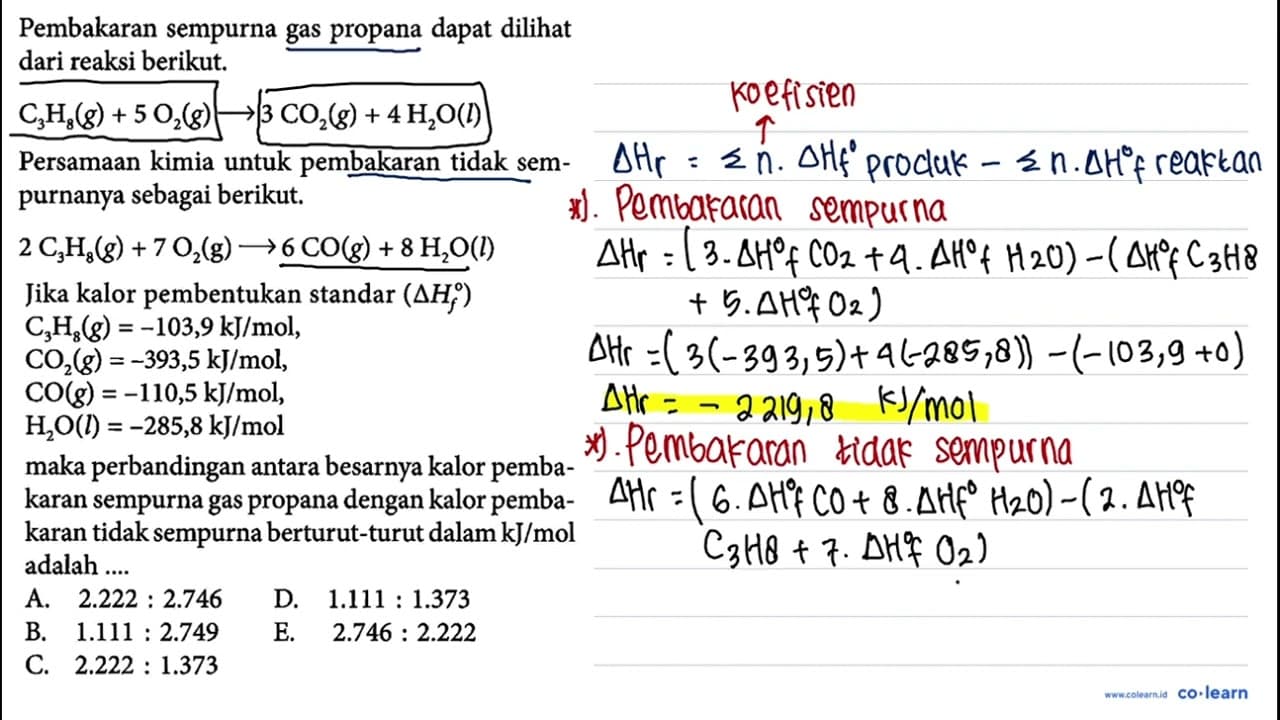 Pembakaran sempurna gas propana dapat dilihat
dari reaksi berikut.
C₃H₈(g) + 5 O₂(g) ⟶ 3 CO₂(g) + 4 H₂O(l)
Persamaan kimia untuk pembakaran tidak sem-
purnanya sebagai berikut.
2 C₃H₈(g) + 7 O₂(g) ⟶ 6 CO(g) + 8 H₂O(l)
Jika kalor pembentukan standar (ΔH_f°)
C₃H₈(g) = –103,9 kJ/mol,
CO₂(g) = –393,5 kJ/mol,
CO(g) = –110,5 kJ/mol,
H₂O(l) = –285,8 kJ/mol
maka perbandingan antara besarnya kalor pemba-
karan sempurna gas propana dengan kalor pemba-
karan tidak sempurna berturut-turut dalam kJ/mol
adalah ....
A. 2.222 : 2.746 D. 1.111 : 1.373
B. 1.111 : 2.749 E. 2.746 : 2.222
C. 2.222 : 1.373
Koefisien
↑
ΔHr = Σ n. ΔHf° produk – Σ n. ΔH°f reaktan
*). Pembakaran sempurna
ΔHr = (3. ΔH°f CO2 + 4. ΔH°f H2O) – (ΔH°f C3H8
+ 5. ΔH°f O2)
ΔHr = (3(-393,5) + 4(-285,8)) – (-103,9 + 0)
ΔHr = - 2219,8 kJ/mol
*). Pembakaran tidak sempurna
ΔHr = (6. ΔH°f CO + 8. ΔHf° H2O) – (2. ΔH°f
C3H8 + 7. ΔH°f O2)
www.colearn.id co·learn